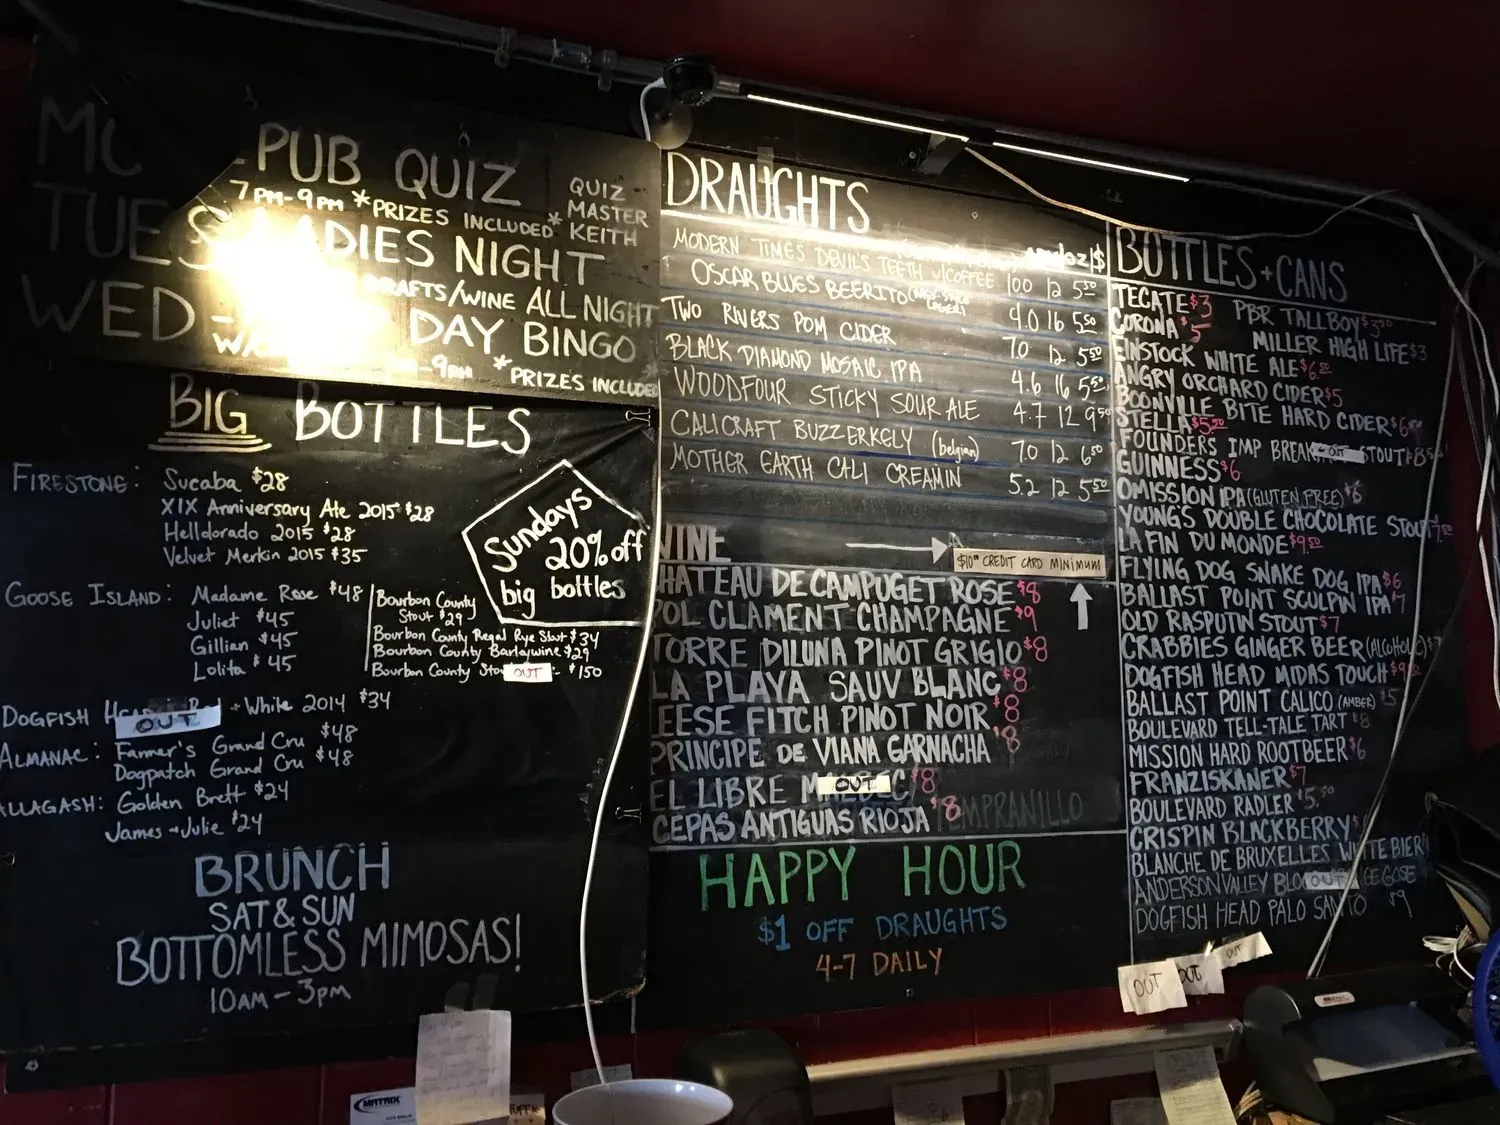 PUB QUIZ
7PM-9PM *PRIZES INCLUDED*
QUIZ
MASTER
KEITH
TUES LADIES NIGHT
DRAFTS/WINE ALL NIGHT
WED - DAY BINGO
-9PM *PRIZES INCLUDED
BIG BOTTLES
FIRESTONE: Sucaba $28
XIX Anniversary Ale 2015 $28
Helldorado 2015 $28
Velvet Merkin 2015 $35
Sundays
20% off
big bottles
GOOSE ISLAND: Madame Rose $48
Juliet $45
Gillian $45
Lolita $45
Bourbon County
Stout $29
Bourbon County Regal Rye Stout $34
Bourbon County Barleywine $29
Bourbon County Sto OUT $150
DOGFISH OUT + White 2014 $34
ALMANAC: Farmer's Grand Cru $48
Dogpatch Grand Cru $48
ALLAGASH: Golden Brett $24
James + Julie $24
BRUNCH
SAT & SUN
BOTTOMLESS MIMOSAS!
10AM - 3PM
DRAUGHTS
oz $
MODERN TIMES DEVIL'S TEETH w/COFFEE 100 12 5.50
OSCAR BLUES BEERITO 4.0 16 5.50
TWO RIVERS POM CIDER 7.0 12 5.50
BLACK DIAMOND MOSAIC IPA 4.6 16 5.50
WOODFOUR STICKY SOUR ALE 4.7 12 9.50
CALICRAFT BUZZERKELY (belgian) 7.0 12 6.00
MOTHER EARTH CALI CREAMIN 5.2 12 5.50
WINE
$10.00 CREDIT CARD MINIMUM
CHATEAU DE CAMPUGET ROSE $8
POL CLAMENT CHAMPAGNE $9
TORRE DI LUNA PINOT GRIGIO $8
LA PLAYA SAUV BLANC $8
LEESE FITCH PINOT NOIR $8
PRINCIPE DE VIANA GARNACHA $8
EL LIBRE MALBEC OUT $8
CEPAS ANTIGUAS RIOJA $8 TEMPRANILLO
HAPPY HOUR
$1 OFF DRAUGHTS
4-7 DAILY
BOTTLES + CANS
TECATE $3 PBR TALLBOY $3.50
CORONA $5 MILLER HIGH LIFE $3
EINSTOCK WHITE ALE $6.50
ANGRY ORCHARD CIDER $5
BOONVILLE BITE HARD CIDER $6.50
STELLA $5.50
FOUNDERS IMP BREAK OUT STOUT
GUINNESS $6
OMISSION IPA (GLUTEN FREE) $6
YOUNGS DOUBLE CHOCOLATE STOUT $7.50
LA FIN DU MONDE $9.50
FLYING DOG SNAKE DOG IPA $6
BALLAST POINT SCULPIN IPA $7
OLD RASPUTIN STOUT $7
CRABBIES GINGER BEER (ALCOHOLIC) $7
DOGFISH HEAD MIDAS TOUCH
BALLAST POINT CALICO (AMBER) $5
BOULEVARD TELL-TALE TART $8
MISSION HARD ROOTBEER $6
FRANZISKANER $7
BOULEVARD RADLER $5.50
CRISPIN BLACKBERRY
BLANCHE DE BRUXELLES WHITE BIER
ANDERSON VALLEY BLO OUT GE GOSE
DOGFISH HEAD PALO SANTO $9
OUT OUT OUT
MATRIX